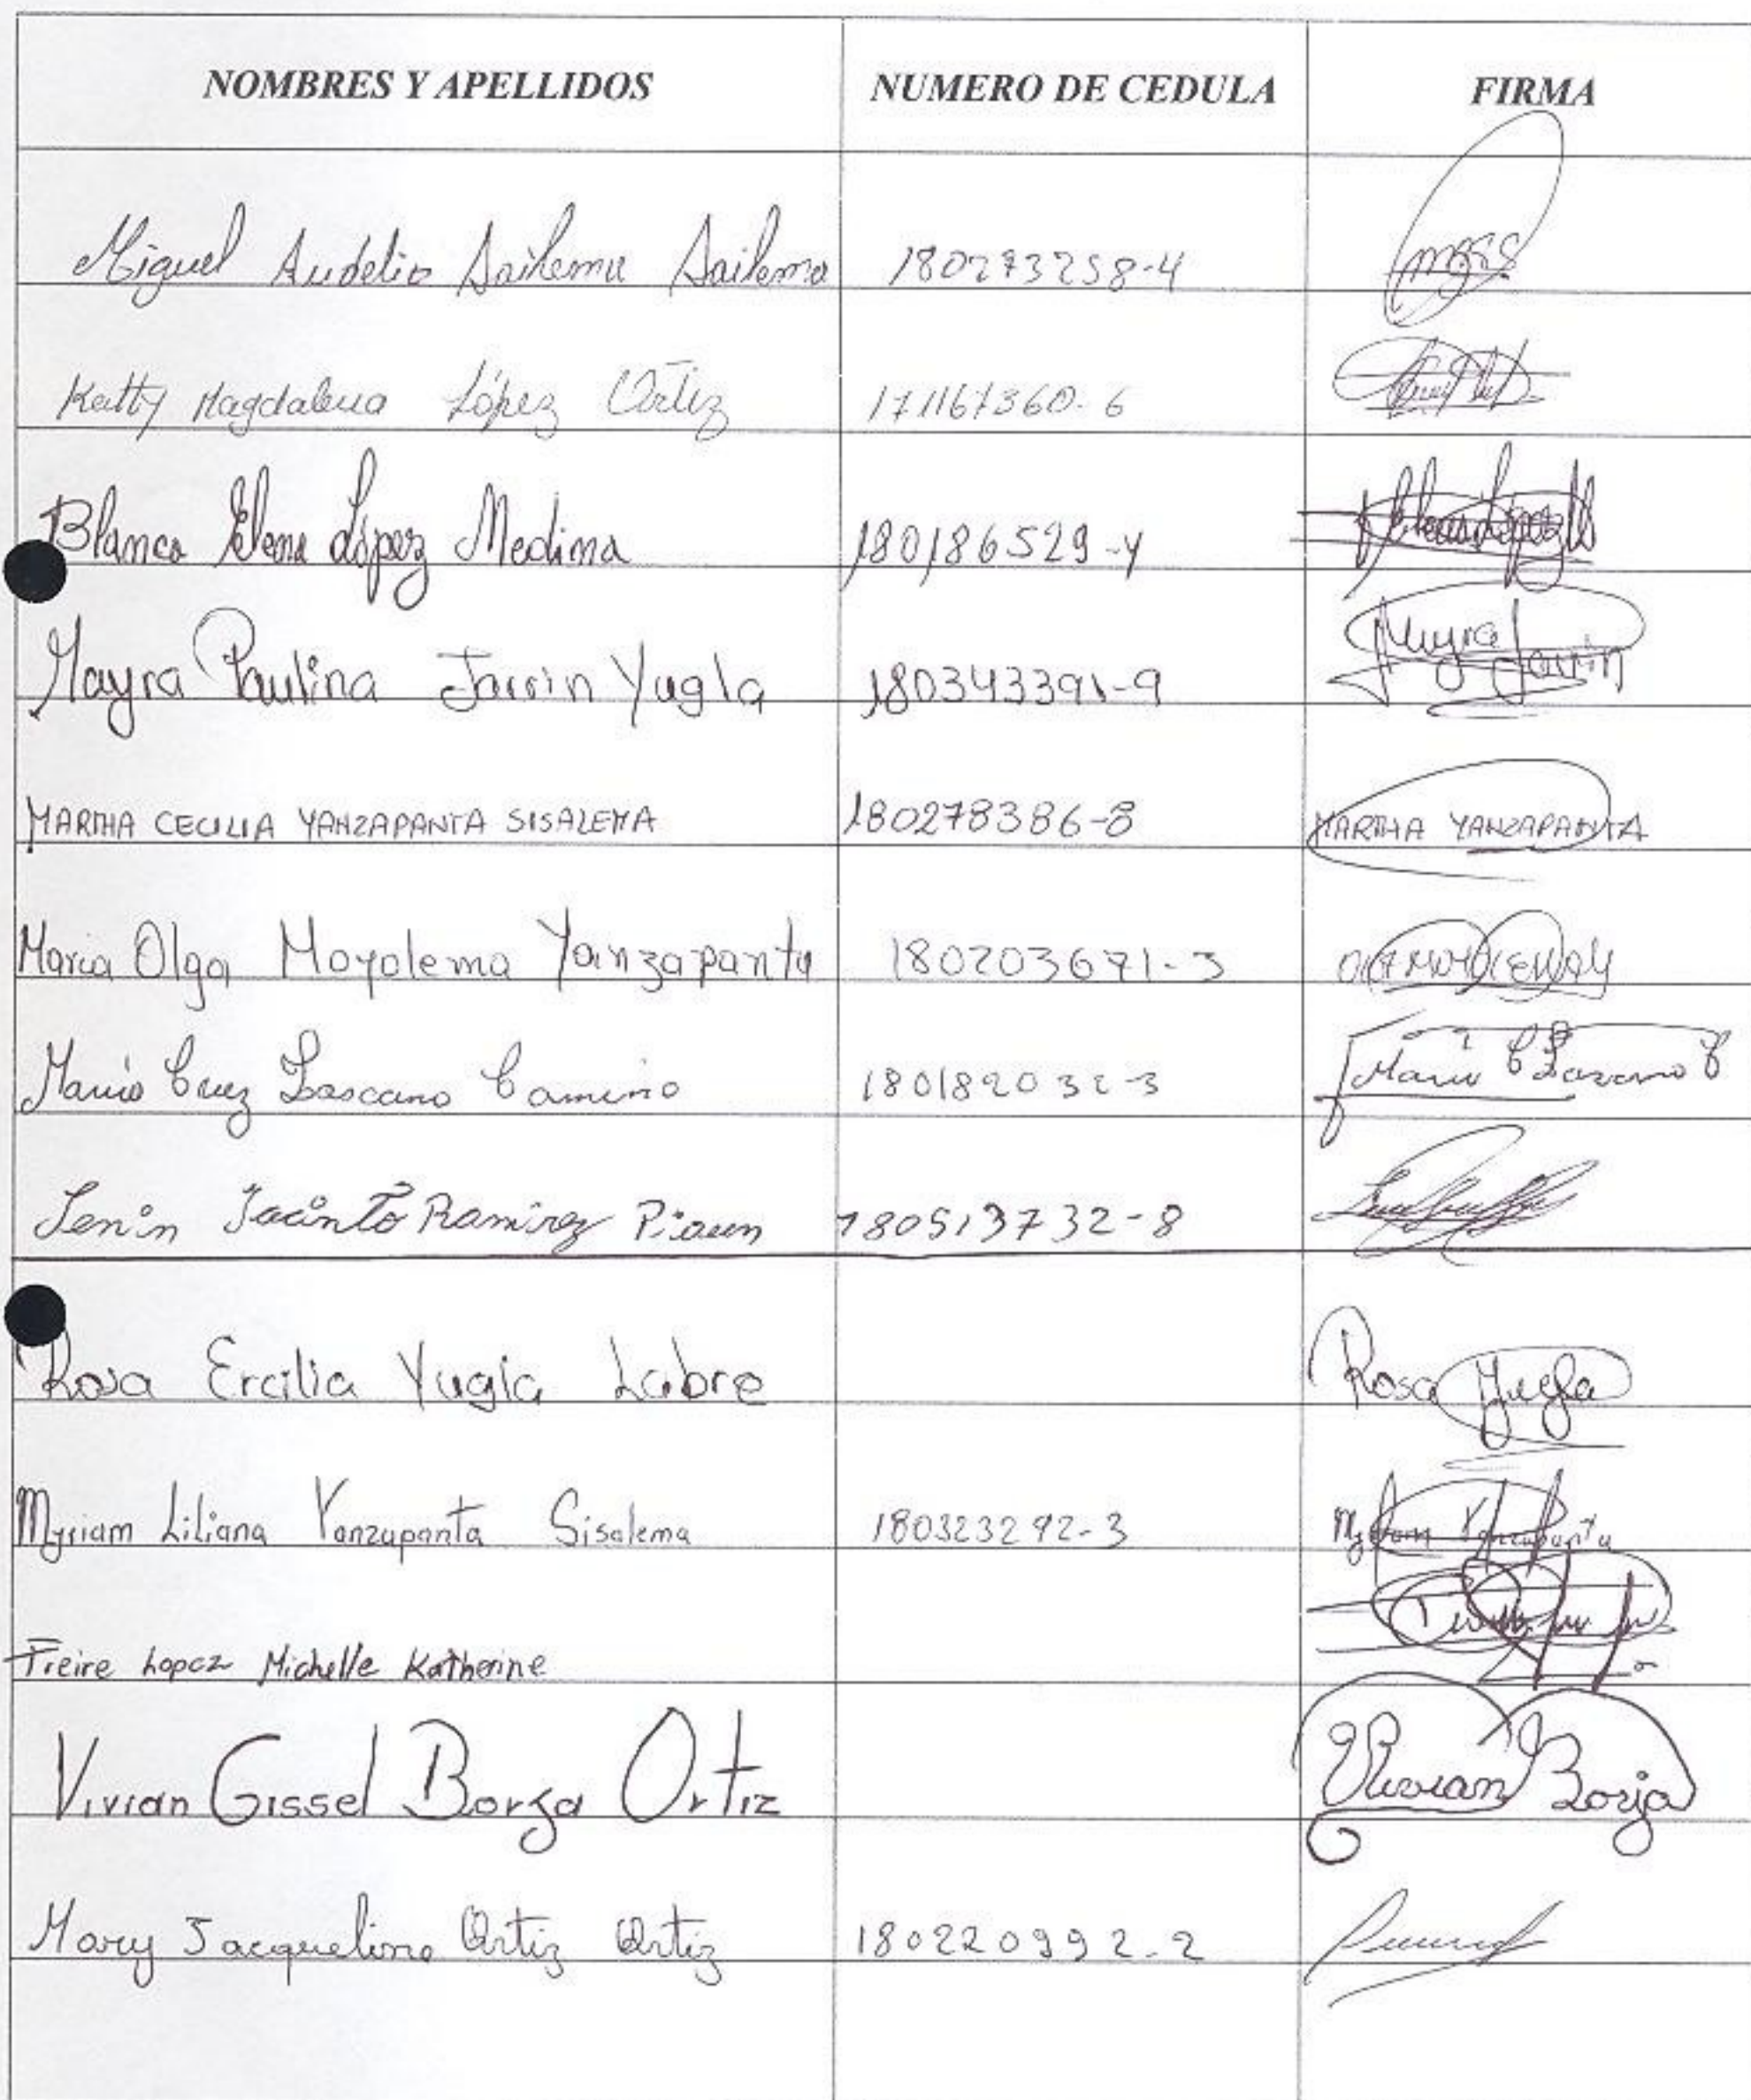 NOMBRES Y APELLIDOS NUMERO DE CEDULA FIRMA
Miguel Audelio Sailema Sailema 180273258-4
Katty Magdalena López Ortiz 171167360-6
Blanca Elena López Medina 180186529-4
Mayra Paulina Jarrin Yugla 180343391-9 Mayra Jarrin
MARTHA CECILIA YANZAPANTA SISALEMA 180278386-8 MARTHA YANZAPANTA
Maria Olga Moyolema Yanzapanta 180203671-3
Mario Cruz Lascano Camino 180182032-3 Mario C Lascano C
Lenin Jacinto Ramirez 180513732-8
Rosa Ercilia Yugla Labre Rosa Yugla
Myriam Liliana Yanzapanta Sisalema 180323292-3 Myriam Yanzapanta
Freire Lopez Michelle Katherine
Vivian Gissel Borja Ortiz Vivian Borja
Mary Jacqueline Ortiz Ortiz 180220992-2